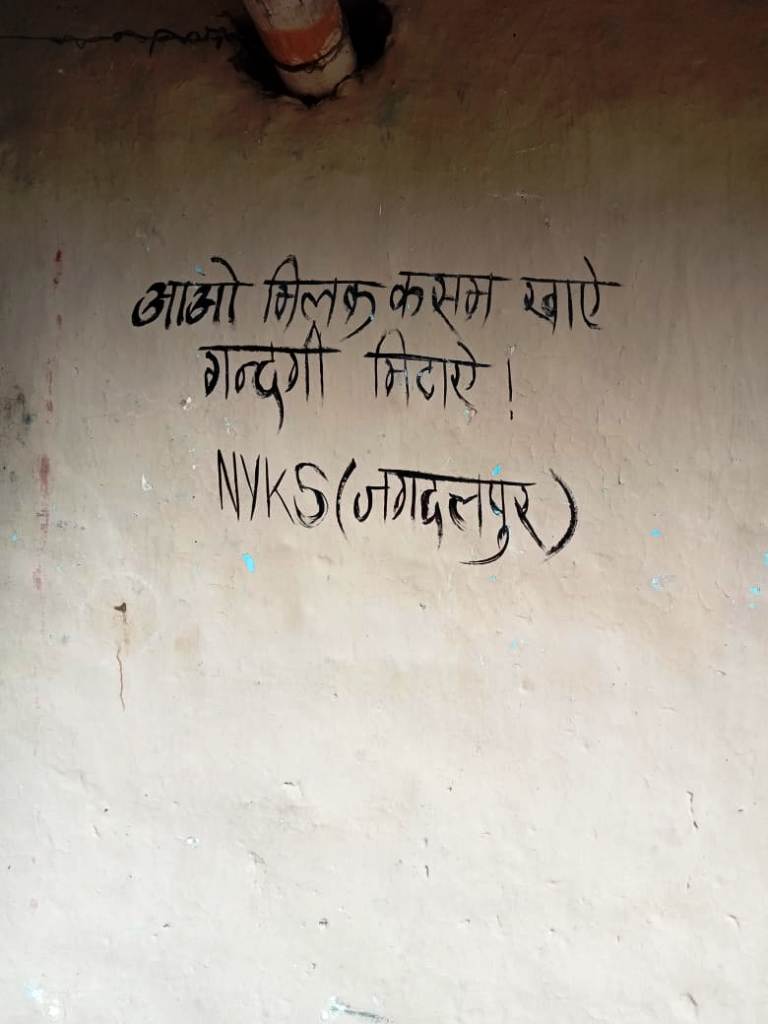 आओ मिलक कसम खाऐ
गन्दगी मिटाऐ !
NYKS (जगदलपुर)